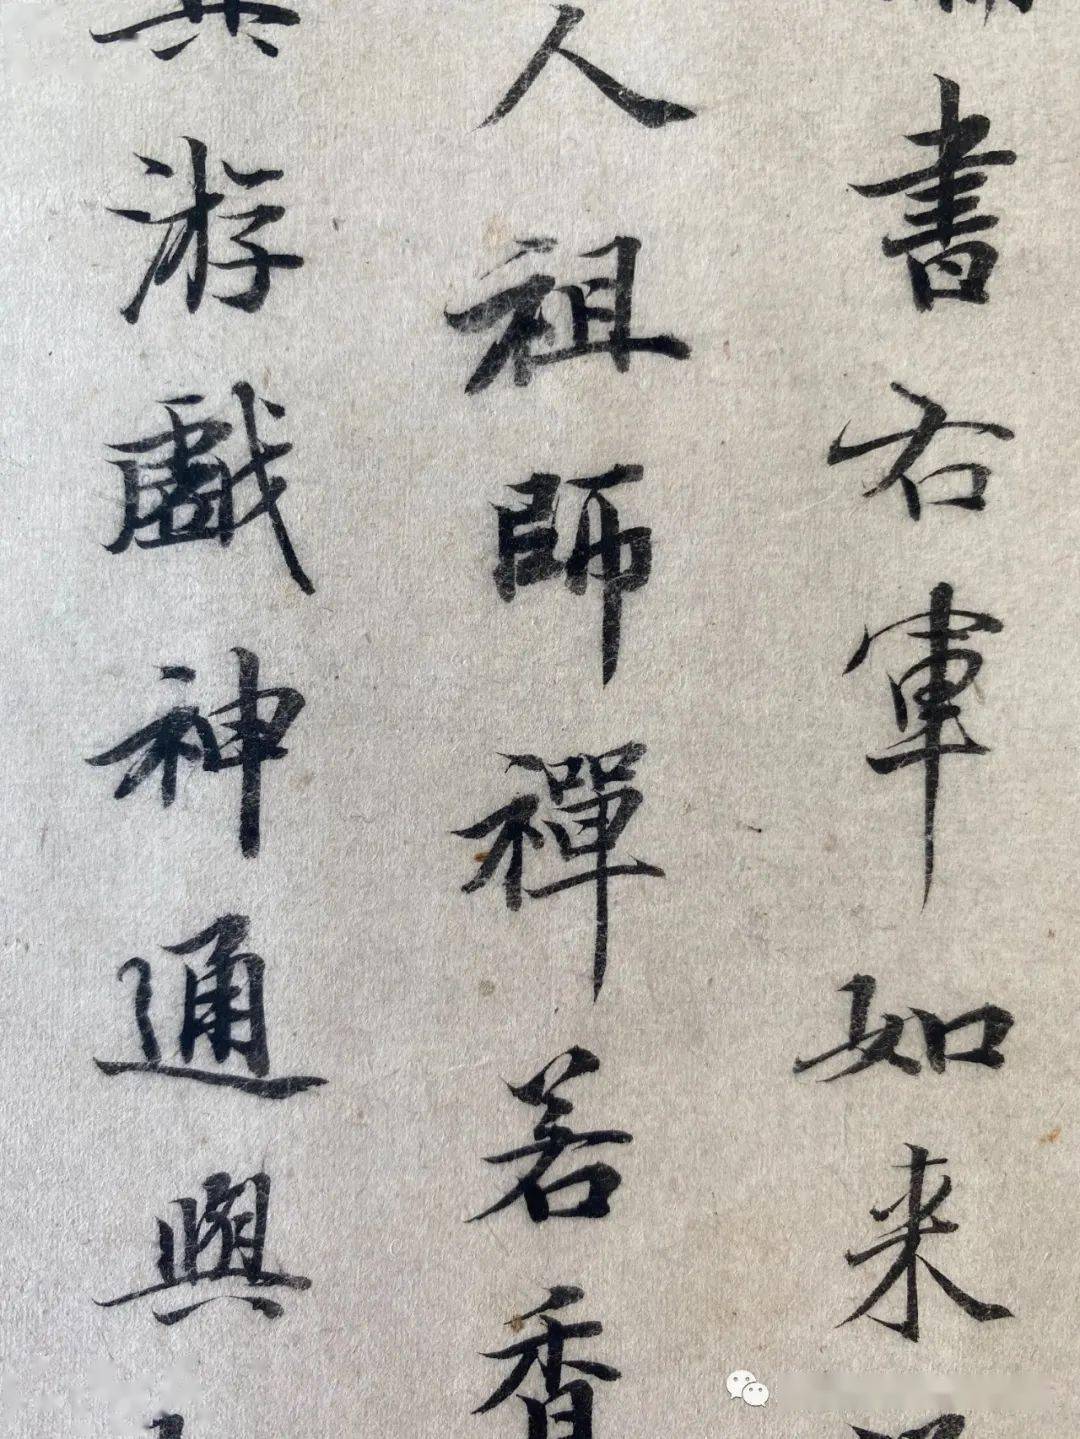 書右軍如来
人祖師禪若香
游戲神通與